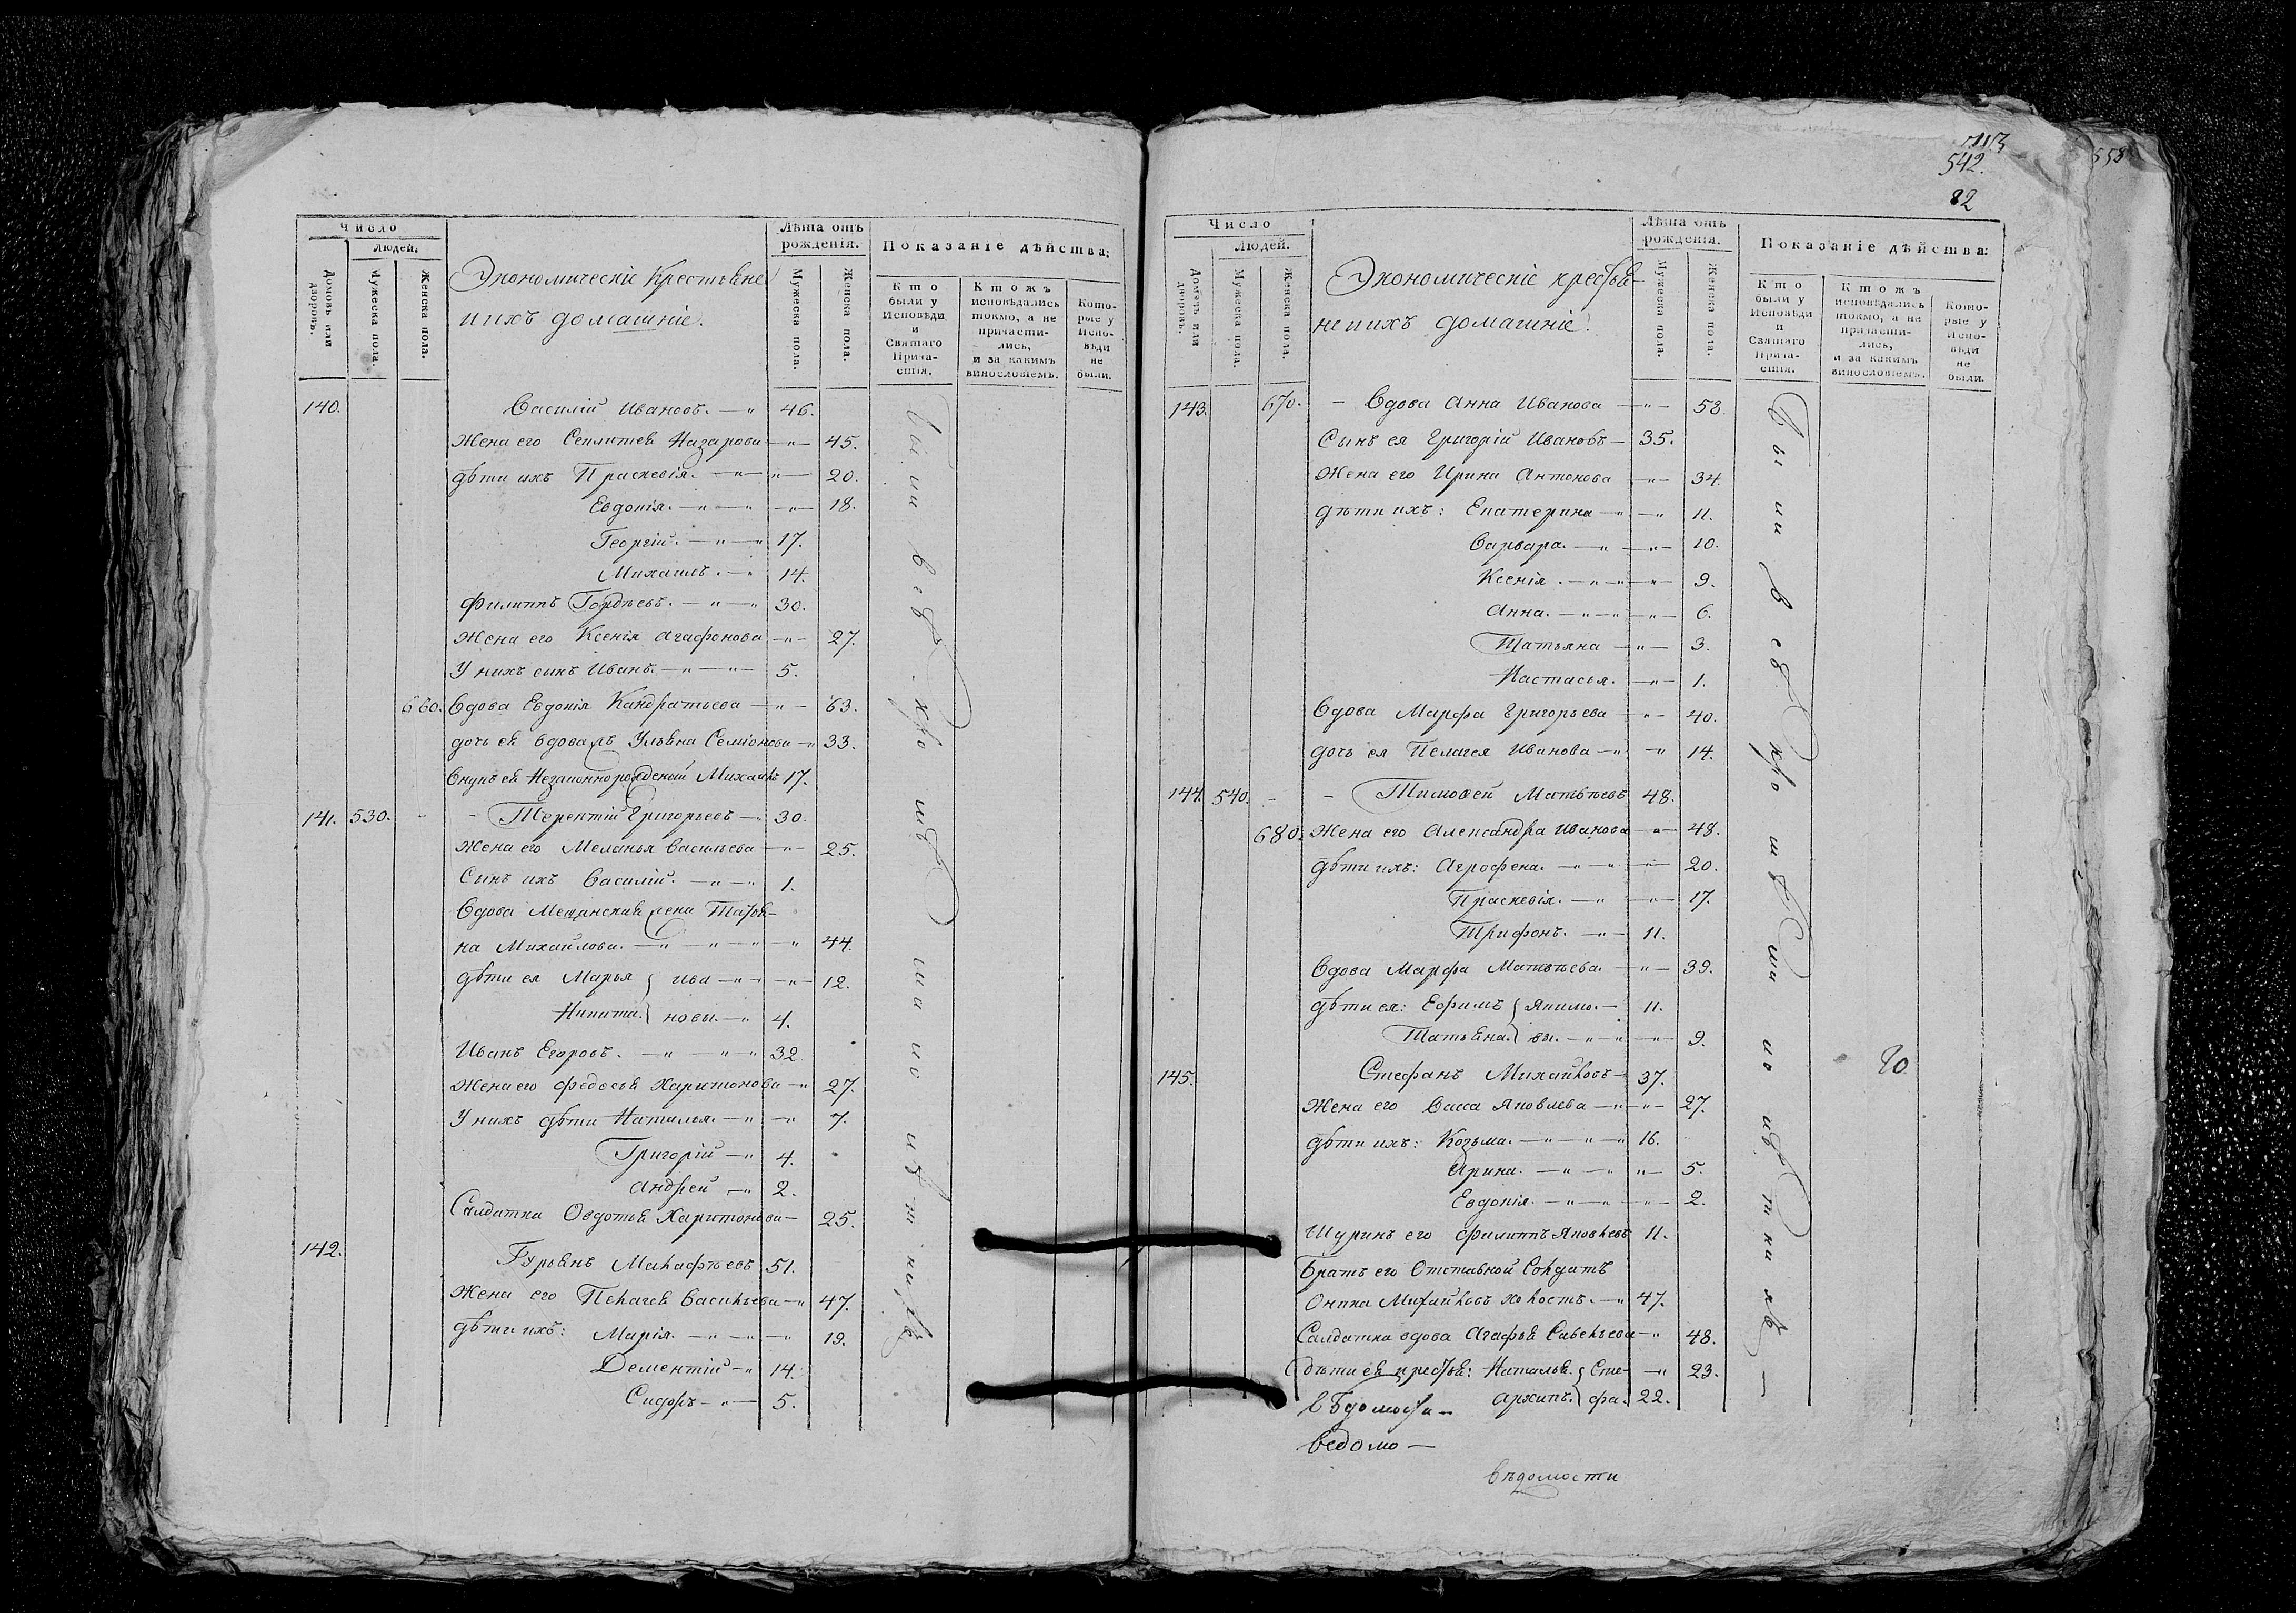 Число
Людей.
Домовъ или дворовъ.
Мужеска пола.
Женска пола.
Экономическіе Крестьяне
и ихъ домашніе.
Лѣта отъ рожденія.
Мужеска пола.
Женска пола.
Показаніе дѣйства:
Кто были у Исповѣди и Святаго Прича-стія.
Ктожъ исповѣдались токмо, а не причасти-лись, и за какимъ винословіемъ.
Кото-рые у Испо-вѣди не были.
140. Василій Ивановъ. — " 46.
Жена его Назарова — " — 45.
дѣти ихъ Праскевія. — " — " — 20.
Евдокія. — " — " — " — 18.
Георгій. — " — " 17.
Михаилъ. — " 14.
Филиппъ Гордѣевъ. — " — " 30.
Жена его Ксенія Агафонова — " — 27.
У нихъ сынъ Иванъ. — " — " — 5.
660. Вдова Евдокія Кандратьева — " — 63.
дочь ея вдова Ульяна Семіонова — " 33.
Внукъ ея Незаконнорожденой Михаилъ 17.
141. 530. - - Терентій Григорьевъ — " 30.
Жена его Меланья Васильева — " — 25.
Сынъ ихъ Василій. — " — " 1.
Вдова Мещанская жена Татья-
на Михайлова. — " — " — " — " 44.
дѣти ея Марья } Ива — " — " — 12.
Никита. } новы. — " 4.
Иванъ Егоровъ. — " — " — " 32.
Жена его Федосья Харитонова — " 27.
У нихъ дѣти Наталья. — " — " 7.
Григорій — " 4.
Андрей — " 2.
Салдатка Овдотья Харитонова — 25.
142. Гурьянъ Малафѣевъ 51.
Жена его Пелагея Васильева — " 47.
дѣти ихъ: Марія. — " — " — " 19.
Дементій — " 14.
Сидоръ — " — 5.
713
542.
82
558
Число
Людей.
Домовъ или дворовъ.
Мужеска пола.
Женска пола.
Экономическіе крестья-
не и ихъ домашніе:
Лѣта отъ рожденія.
Мужеска пола.
Женска пола.
Показаніе дѣйства:
Кто были у Исповѣди и Святаго Прича-стія.
Ктожъ исповѣдались токмо, а не причасти-лись, и за какимъ винословіемъ.
Кото-рые у Испо-вѣди не были.
143. 670. - Вдова Анна Иванова — " — 58.
Сынъ ея Григорій Ивановъ — 35.
Жена его Ирина Антонова — " — 34.
дѣти ихъ: Екатерина — " — " 11.
Варвара. — " — " — 10.
Ксенія. — " — " — " — 9.
Анна. — " — " — " — 6.
Татьяна — " — 3.
Настасья. — " — 1.
Вдова Марфа Григорьева — " — 40.
дочь ея Пелагея Иванова — " — " 14.
144. 540. - - Тимофей Матвѣевъ 48.
680. Жена его Александра Иванова — " — 48.
дѣти ихъ: Агрофена. — " — " — " — 20.
Праскевія. — " — " — 17.
Трифонъ. — " — 11.
Вдова Марфа Матвѣева. — " — 39.
дѣти ея: Ефимъ } Якимо. — 11.
Татьяна. } вы. — " — " — " — 9.
145. Стефанъ Михайловъ — 37.
20
Жена его Васса Яковлева — " — " — 27.
дѣти ихъ: Козьма. — " — " — " 16.
Ирина. — " — " " — 5.
Евдокія. — " — " — " — 2.
Шуринъ его Филиппъ Яковлевъ 11.
Братъ его Отставной Солдатъ
Михайловъ холостъ. — " 47.
Салдатка вдова Агафья Савельева — " 48.
дѣти ея крестья: Наталья. } Сте- — " 23.
Архипъ. } фа. 22.
вѣдомости
ведомо —
вѣдомости